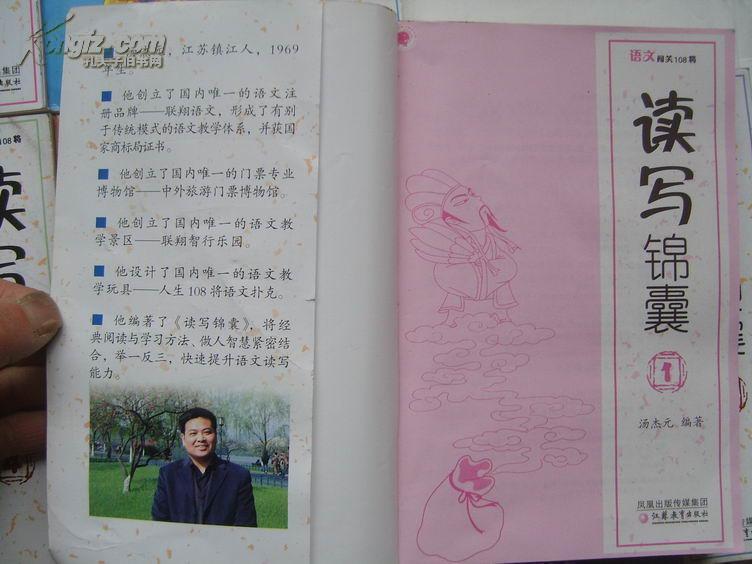 kongfz.com
孔夫子旧书网
，江苏镇江人，1969
年生。
他创立了国内唯一的语文注
册品牌——联翔语文，形成了有别
于传统模式的语文教学体系，并获国
家商标局证书。
他创立了国内唯一的门票专业
博物馆——中外旅游门票博物馆。
他创立了国内唯一的语文教
学景区——联翔智行乐园。
他设计了国内唯一的语文教
学玩具——人生108将语文扑克。
他编著了《读写锦囊》，将经
典阅读与学习方法、做人智慧紧密结
合，举一反三，快速提升语文读写
能力。
语文闯关108将
读写锦囊
1
汤杰元 编著
凤凰出版传媒集团
江苏教育出版社
媒集团
版社
108将
读写